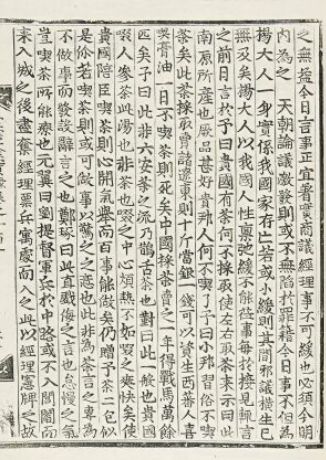 之無益今日言事正宜着實商議經理事不可緩也必須今明
內爲之　天朝論議激發則或不無陷於罪籍今日事不但爲
揚大人一身實係我國家存亡若或小緩則其間邪議橫生已
無及矣揚大人以我國人性稟弛緩不能莅事每於接見輒言
之前日言於予曰貴國有茶何不採取使左右取茶來示曰此
南原所産也厥品甚好貴邦人何不喫了予曰小邦習俗不喫
茶矣此茶採取賣諸遼東則十斤當銀一錢可以資生西蕃人喜
喫膏油一日不喫茶則死矣中國採茶賣之一年得戰馬萬餘
匹矣予曰此非六安茶之流乃鵲舌茶也對曰此一般也貴國
啜人參茶此湯也非茶也啜之中心煩熱不如啜之爽快矣使
貴國陪臣喫茶則心開氣擧而百事能做矣仍贈予茶二包似
是你若喫茶則或可做事以驚之之意也此非爲茶言之專爲
不做事而發設辭言之也鄭琢曰此直戲侮之言也怠慢之氣
豈喫茶所能療也元翼曰劉提督軍兵於中路或不入閭閻而
來入城之後盡奪經理票兵寓處而入之此以經理憲牌之故